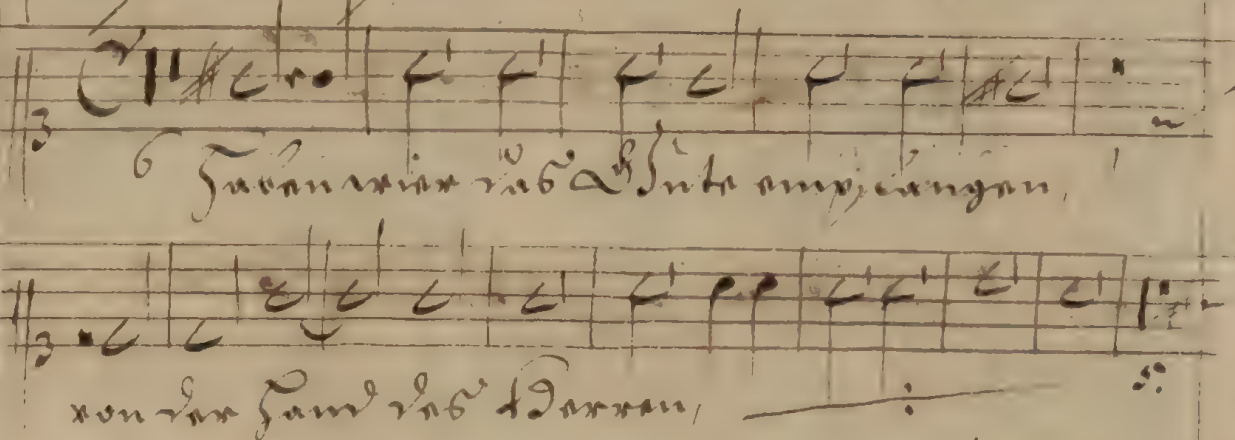 3
6 Haben wier das Gute empfangen,
3
von der Hand des Herren,